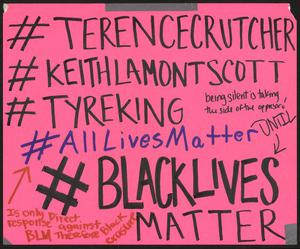 #TERENCECRUTCHER
#KEITHLAMONTSCOTT
#TYREKING
being silent is taking
the side of the oppressor!
#AllLivesMatter
UNTIL
#BLACKLIVES
MATTER
Is only Direct
response against
BLM Therefore Black
erasure